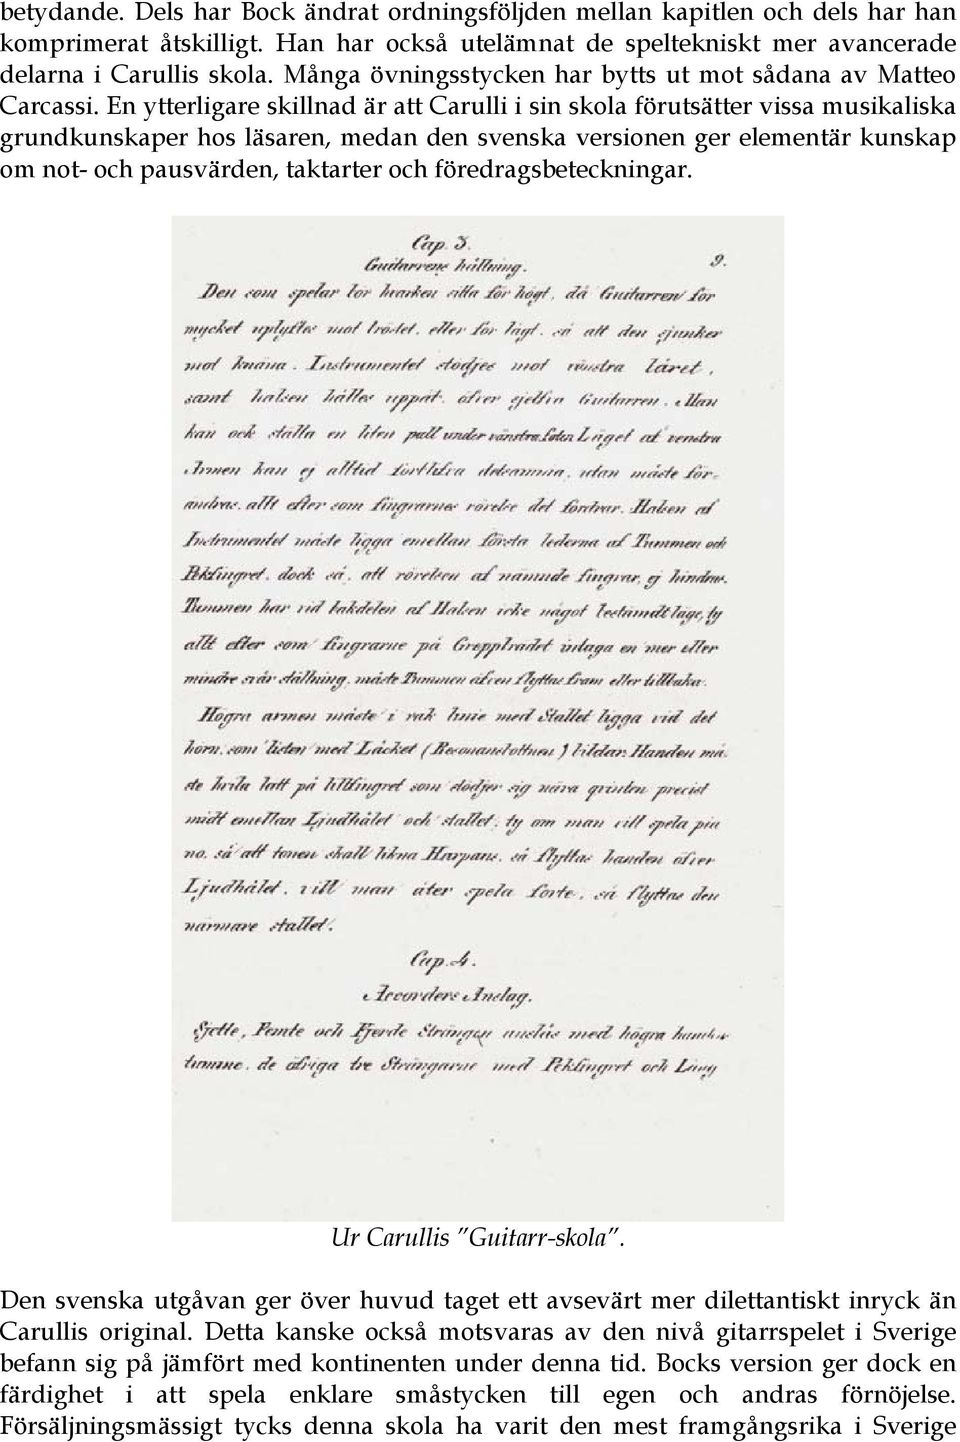 betydande. Dels har Bock ändrat ordningsföljden mellan kapitlen och dels har han
komprimerat åtskilligt. Han har också utelämnat de speltekniskt mer avancerade
delarna i Carullis skola. Många övningsstycken har bytts ut mot sådana av Matteo
Carcassi. En ytterligare skillnad är att Carulli i sin skola förutsätter vissa musikaliska
grundkunskaper hos läsaren, medan den svenska versionen ger elementär kunskap
om not- och pausvärden, taktarter och föredragsbeteckningar.
Cap. 3.
Guitarrens hållning. 9.
Den som spelar bör hvarken sitta för högt, då Guitarren för
mycket uplyftes mot bröstet, eller för lågt, så att den sjunker
mot knäna. Instrumentet stödjes mot vänstra låret,
samt halsen hålles uppåt, öfver sjelfva Guitarren. Man
kan ock ställa en liten pall under vänstra foten. Läget af venstra
Armen kan ej alltid förblifva detsamma, utan måste för-
ändras, allt efter som fingrarnes rörelse det fordrar. Halsen af
Instrumentet måste ligga emellan första lederna af Tummen och
Pekfingret, dock så, att rörelsen af nämnde fingrar, ej hindras.
Tummen har vid bakdelen af Halsen icke något bestämdt läge, ty
allt efter som fingrarne på Greppbrädet intaga en mer eller
mindre svår ställning, måste Tummen äfven flyttas fram eller tillbaka.
Högra armen måste i rak linie med Stallet ligga vid det
hörn, som listen med Låcket (Resonansbottnen) bildar. Handen må-
ste hvila lätt på lillfingret som stödjer sig nära qvinten precist
midt emellan Ljudhålet och stallet, ty om man vill spela pia
no, så att tonen skall likna Harpans, så flyttas handen öfver
Ljudhålet, vill man åter spela forte, så flyttas den
närmare stallet.
Cap. 4.
Accorders Anslag.
Sjette, Femte och Fjerde Strängen anslås med högra hand
tumme, de öfriga tre Strängarne med Pekfingret och Lång
Ur Carullis ”Guitarr-skola”.
Den svenska utgåvan ger över huvud taget ett avsevärt mer dilettantiskt inryck än
Carullis original. Detta kanske också motsvaras av den nivå gitarrspelet i Sverige
befann sig på jämfört med kontinenten under denna tid. Bocks version ger dock en
färdighet i att spela enklare småstycken till egen och andras förnöjelse.
Försäljningsmässigt tycks denna skola ha varit den mest framgångsrika i Sverige